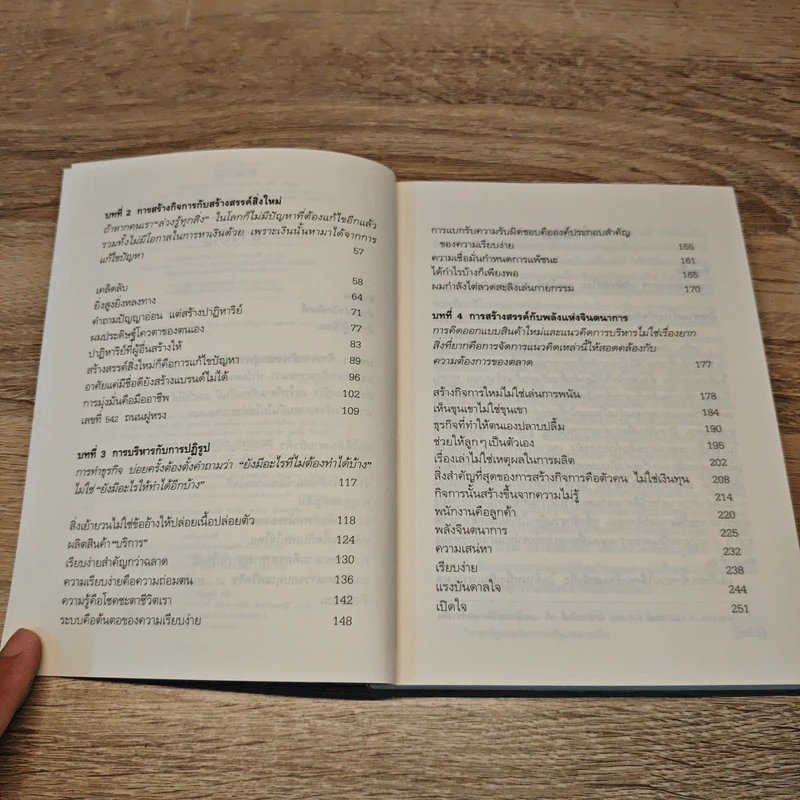 บทที่ 2 การสร้างกิจการกับสร้างสรรค์สิ่งใหม่
ถ้าหากคนเรา "ล่วงรู้ทุกสิ่ง" ในโลกก็ไม่มีปัญหาที่ต้องแก้ไขอีกแล้ว
รวมทั้งไม่มีโอกาสในการหาเงินด้วย เพราะเงินนั้นหามาได้จากการ
แก้ไขปัญหา 57
เคล็ดลับ 58
ยิ่งสูงยิ่งหลงทาง 64
คำถามปัญญาอ่อน แต่สร้างปาฏิหาริย์ 71
ผมประดิษฐ์โควตาของตนเอง 77
ปาฏิหาริย์ที่ผู้อื่นสร้างให้ 83
สร้างสรรค์สิ่งใหม่ก็คือการแก้ไขปัญหา 89
อาศัยแค่มีชื่อดียังสร้างแบรนด์ไม่ได้ 96
การมุ่งมั่นคือมืออาชีพ 102
เลขที่ 542 ถนนผู่หรง 109
บทที่ 3 การบริหารกับการปฏิรูป
การทำธุรกิจ บ่อยครั้งต้องตั้งคำถามว่า "ยังมีอะไรที่ไม่ต้องทำได้บ้าง"
ไม่ใช่ "ยังมีอะไรให้ทำได้อีกบ้าง" 117
สิ่งเย้ายวนไม่ใช่ข้ออ้างให้ปล่อยเนื้อปล่อยตัว 118
ผลิตสินค้า "บริการ" 124
เรียบง่ายสำคัญกว่าฉลาด 130
ความเรียบง่ายคือความถ่อมตน 136
ความรู้คือโชคชะตาชีวิตเรา 142
ระบบคือต้นตอของความเรียบง่าย 148
การแบกรับความรับผิดชอบคือองค์ประกอบสำคัญ
ของความเรียบง่าย 155
ความเชื่อมั่นกำหนดการแพ้ชนะ 161
ได้กำไรบ้างก็เพียงพอ 165
ผมกำลังไต่ลวดสะลิงเล่นกายกรรม 170
บทที่ 4 การสร้างสรรค์กับพลังแห่งจินตนาการ
การคิดออกแบบสินค้าใหม่และแนวคิดการบริหารไม่ใช่เรื่องยาก
สิ่งที่ยากคือการจัดการแนวคิดเหล่านี้ให้สอดคล้องกับ
ความต้องการของตลาด 177
สร้างกิจการใหม่ไม่ใช่เล่นการพนัน 178
เห็นขุนเขาไม่ใช่ขุนเขา 184
ธุรกิจที่ทำให้ตนเองปลาบปลื้ม 190
ช่วยให้ลูกๆ เป็นตัวเอง 195
เรื่องเล่าไม่ใช่เหตุผลในการผลิต 202
สิ่งสำคัญที่สุดของการสร้างกิจการคือตัวคน ไม่ใช่เงินทุน 208
กิจการนั้นสร้างขึ้นจากความไม่รู้ 214
พนักงานคือลูกค้า 220
พลังจินตนาการ 225
ความเสน่หา 232
เรียบง่าย 238
แรงบันดาลใจ 244
เปิดใจ 251